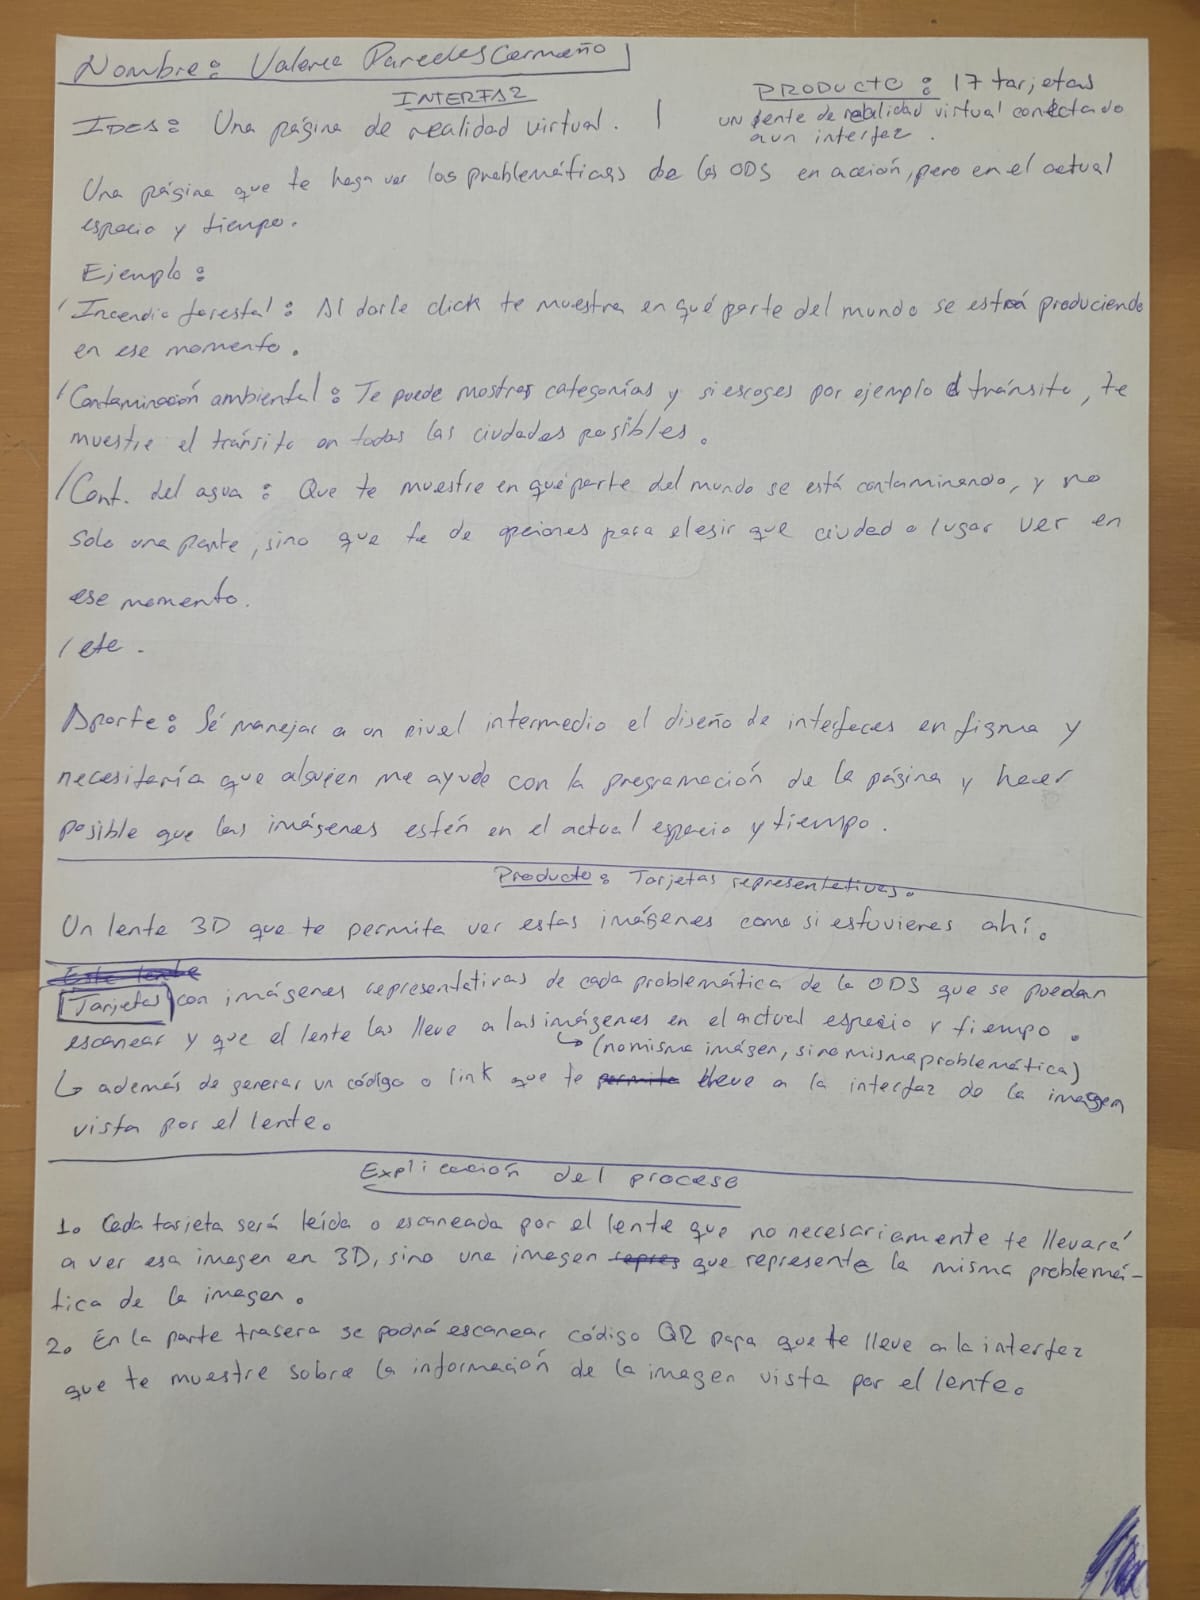 Nombre: Valeria Paredes Cermeño
INTERFAZ
IDEA: Una página de realidad virtual.
PRODUCTO: 17 tarjetas
un lente de realidad virtual conectado
a un interfaz.
Una página que te haga ver las problemáticas de las ODS en acción, pero en el actual
espacio y tiempo.
Ejemplo:
/Incendio forestal: Al darle click te muestra en qué parte del mundo se está produciendo
en ese momento.
/Contaminación ambiental: Te puede mostrar categorías y si escoges por ejemplo el tránsito, te
muestre el tránsito en todas las ciudades posibles.
/Cont. del agua: Que te muestre en qué parte del mundo se está contaminando, y no
solo una parte, sino que te de opciones para elegir que ciudad o lugar ver en
ese momento.
/etc.
Aporte: Sé manejar a un nivel intermedio el diseño de interfaces en figma y
necesitaría que alguien me ayude con la programación de la página y hacer
posible que las imágenes estén en el actual espacio y tiempo.
Producto: Tarjetas representativas.
Un lente 3D que te permita ver estas imágenes como si estuvieras ahí.
Este lente
Tarjetas con imágenes representativas de cada problemática de la ODS que se puedan
escanear y que el lente las lleve a las imágenes en el actual espacio y tiempo.
↳ (no misma imágen, sino misma problemática)
↳ además de generar un código o link que te permita lleve a la interfaz de la imagen
vista por el lente.
Explicación del proceso
1. Cada tarjeta será leída o escaneada por el lente que no necesariamente te llevará
a ver esa imagen en 3D, sino una imagen repres que represente la misma problemá-
tica de la imagen.
2. En la parte trasera se podrá escanear código QR para que te lleve a la interfaz
que te muestre sobre la información de la imagen vista por el lente.